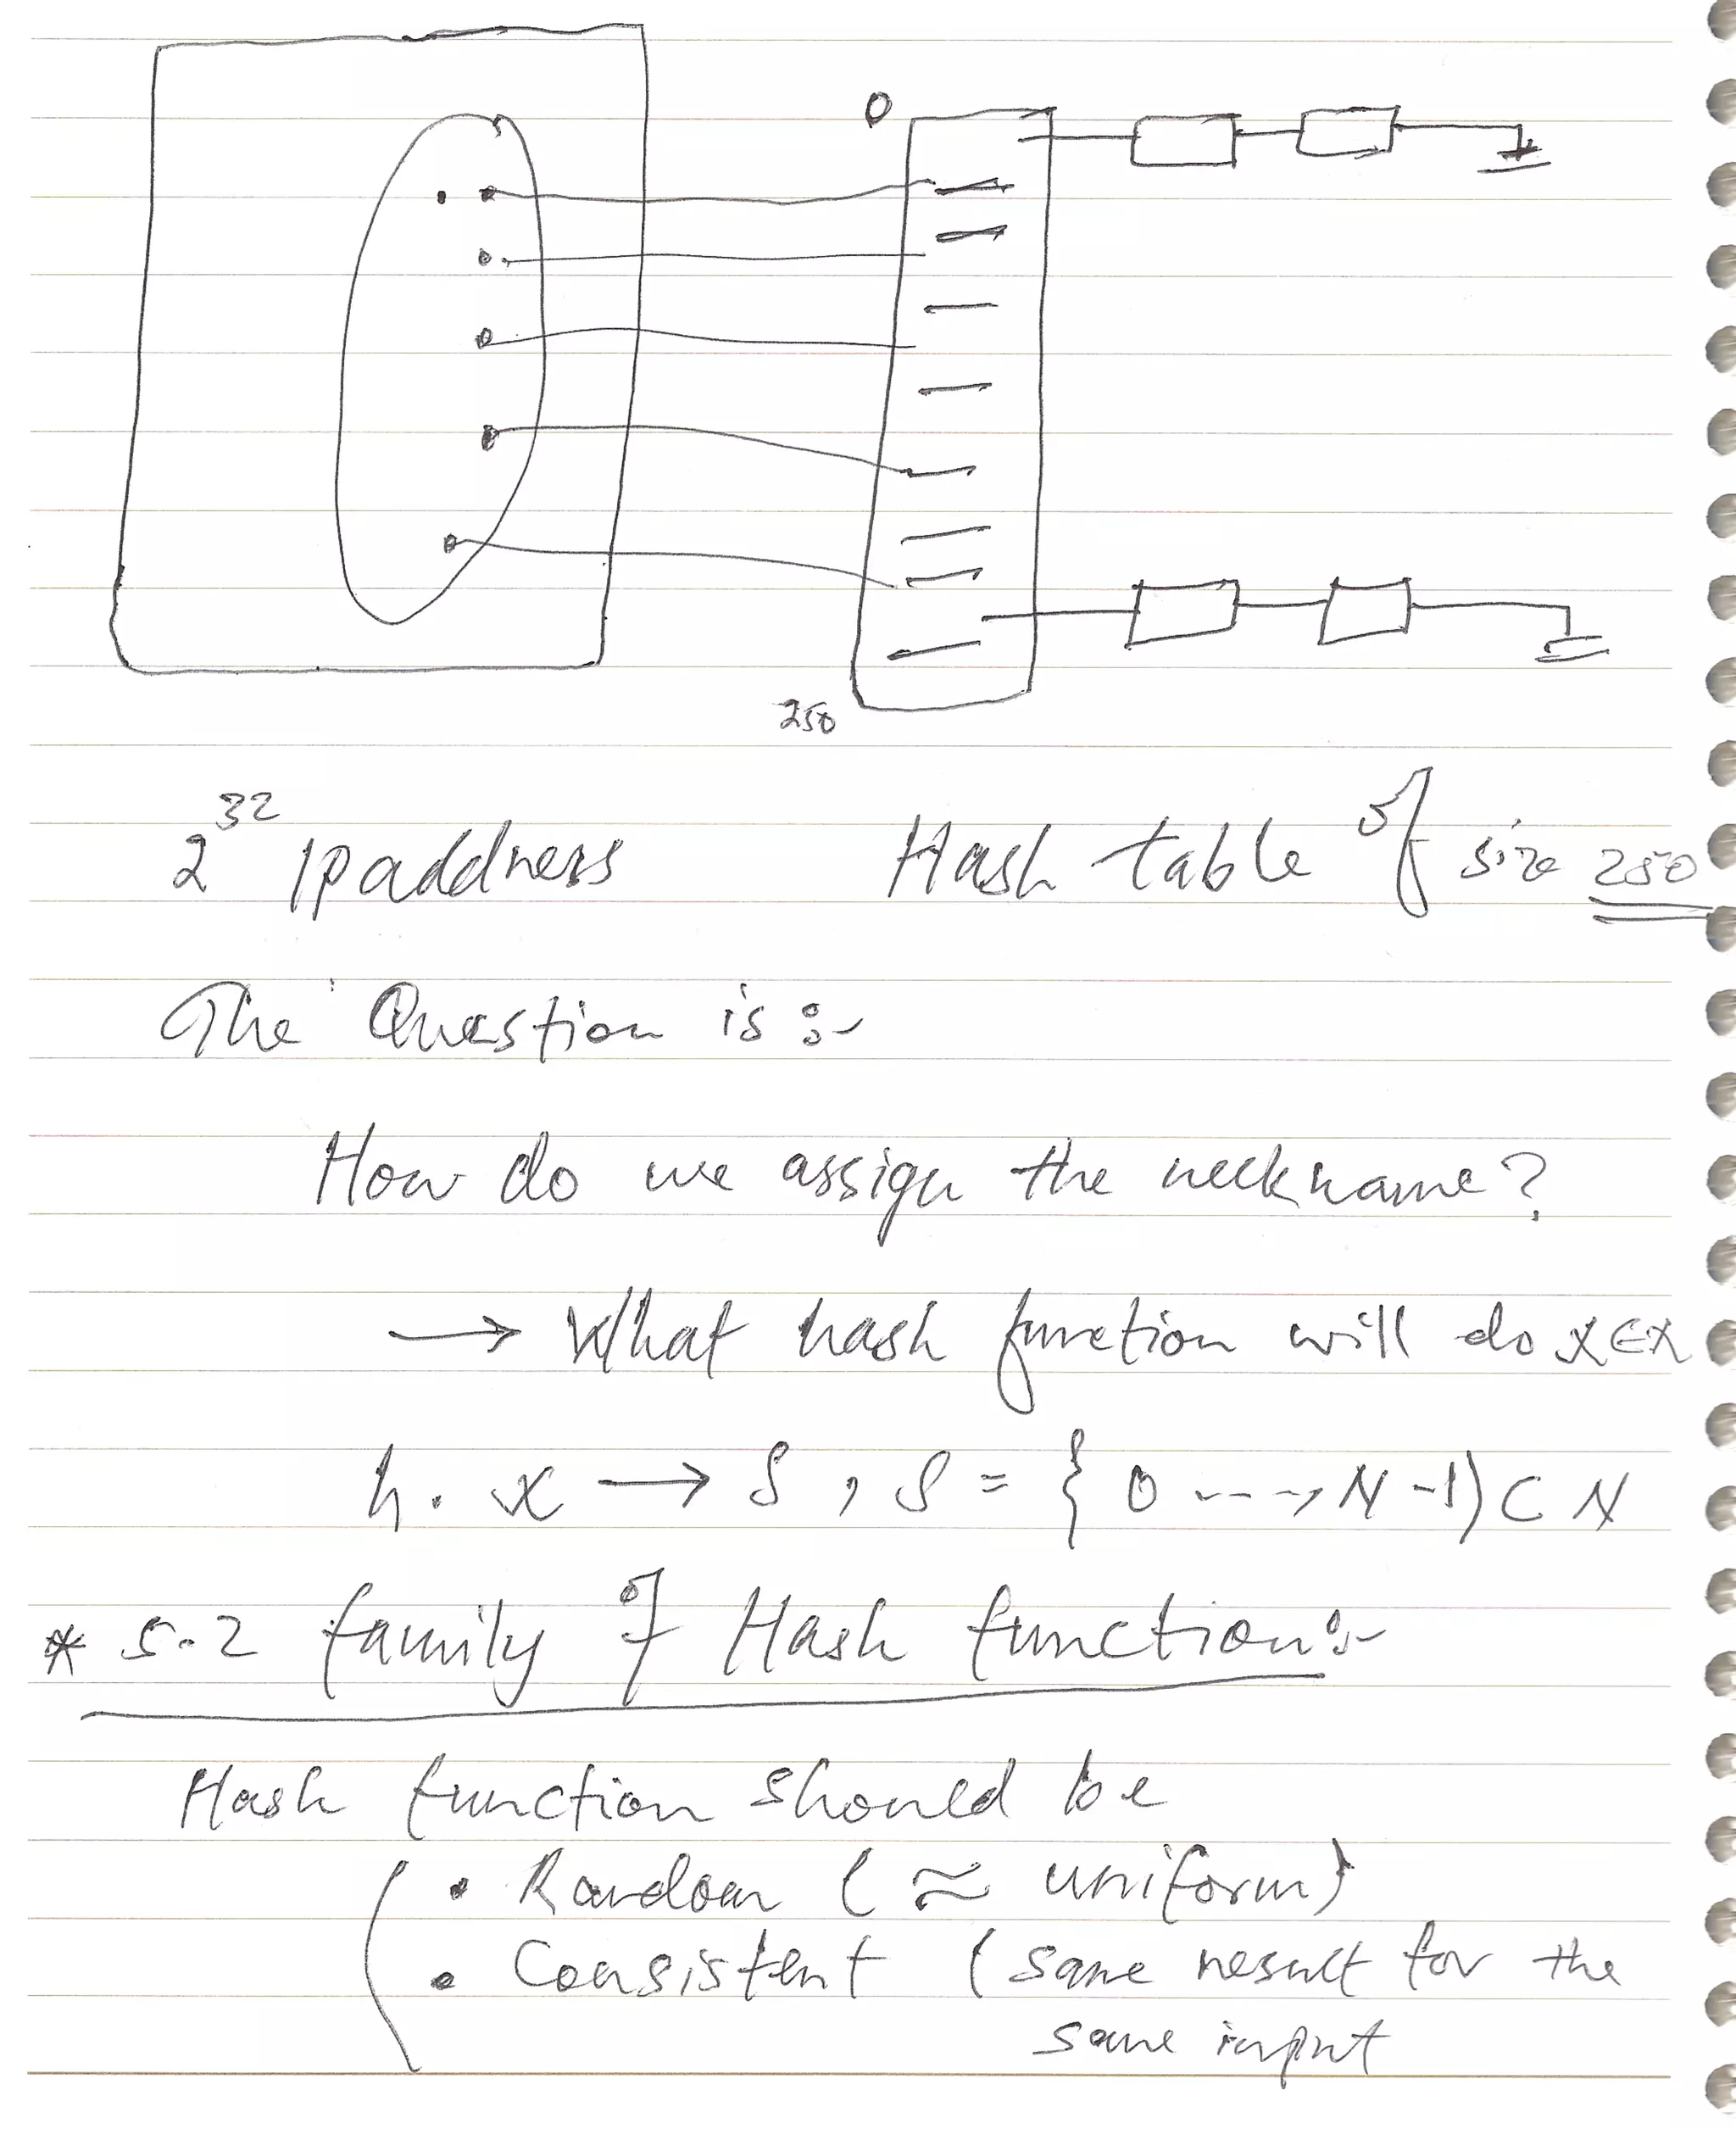 0
250
2^32 IP address Hash table of size 250
The Question is :-
How do we assign the neckname?
→ What hash function will do x ∈ X
h. x → S, S = { 0 ---, N -1) ⊂ N
* 5.2 family of Hash function:-
Hash function should be
• Random ( ≈ uniform)
• Consistent ( same result for the
same input